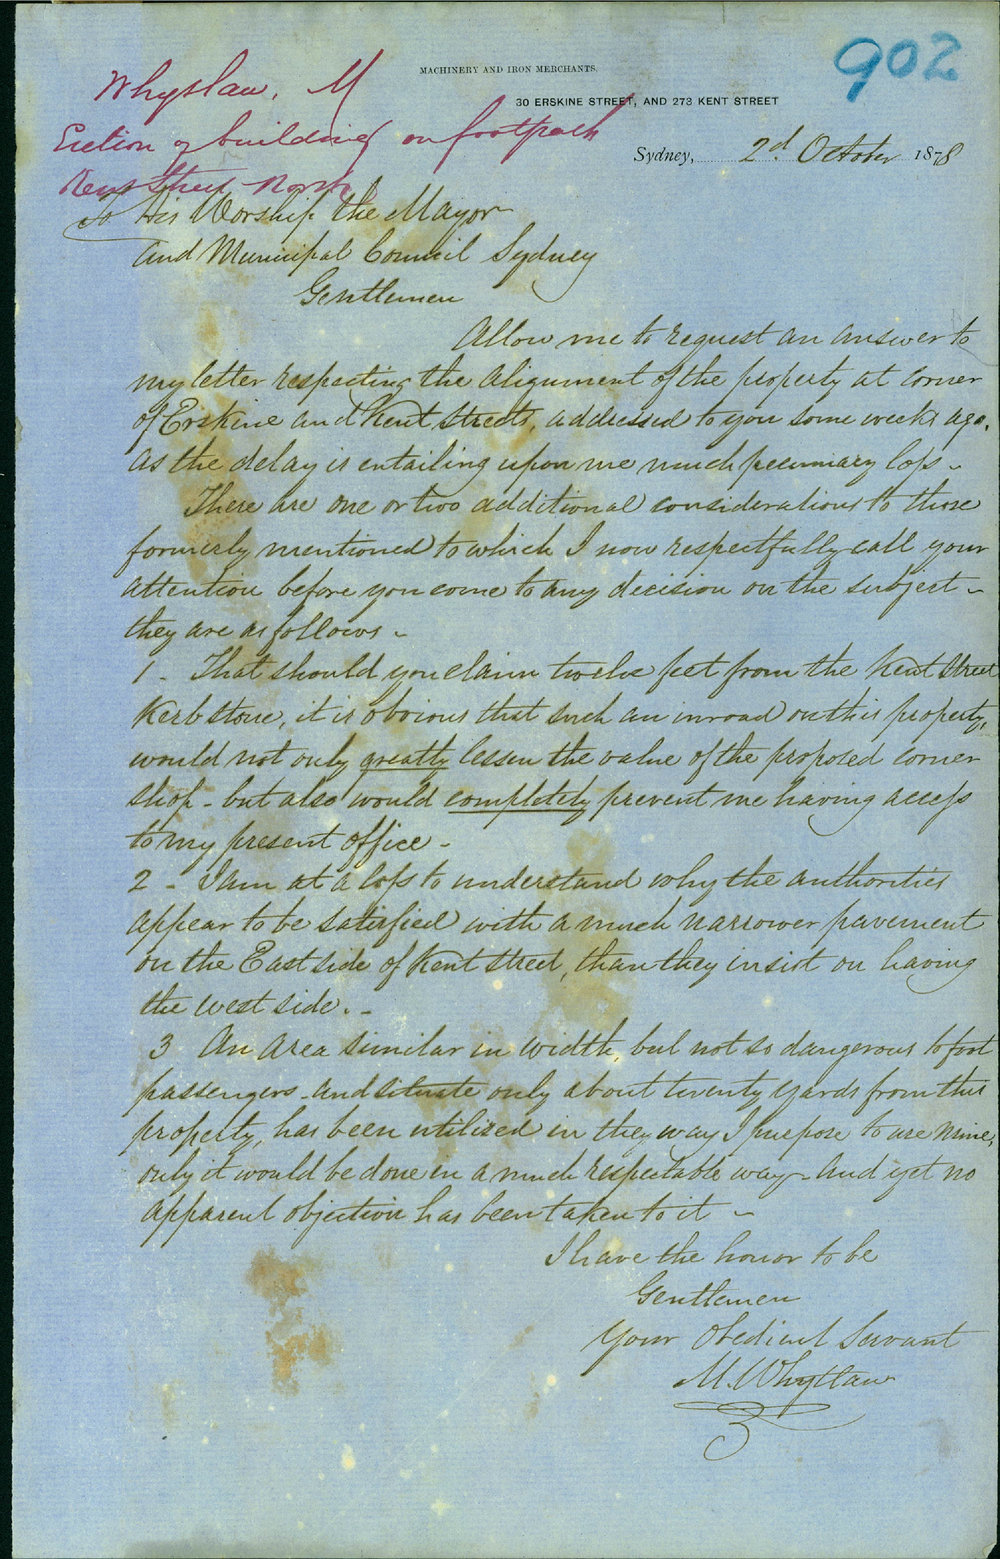 902
MACHINERY AND IRON MERCHANTS.
30 ERSKINE STREET, AND 273 KENT STREET
Whyslaw, M
Erection of building on footpath
Kent Street North
Sydney, 2d October 1878
To His Worship the Mayor
and Municipal Council Sydney
Gentlemen
Allow me to request an answer to
my letter respecting the alignment of the property at corner
of Erskine and Kent Streets, addressed to you some weeks ago,
as the delay is entailing upon me much pecuniary loss -
There are one or two additional considerations to those
formerly mentioned to which I now respectfully call your
attention before you come to any decision on the subject -
they are as follows -
1 - That should you claim twelve feet from the Kent Street
Kerbstone, it is obvious that such an inroad on this property,
would not only greatly lessen the value of the proposed corner
shop - but also would completely prevent me having access
to my present office -
2 - I am at a loss to understand why the authorities
appear to be satisfied with a much narrower pavement
on the East side of Kent Street, than they insist on having
the west side. -
3 An area similar in width, but not so dangerous to foot
passengers - and situate only about twenty yards from this
property, has been utilised in the way I purpose to use mine,
only it would be done in a much respectable way - and yet no
apparent objection has been taken to it -
I have the honor to be
Gentlemen
Your Obedient Servant
M. Whytlaw